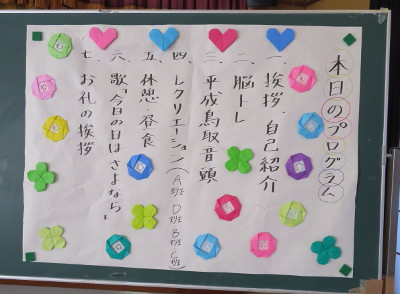 本日のプログラム
一、挨拶・自己紹介
二、脳トレ
三、平成鳥取音頭
四、レクリエーション(A班 D班 B班 C班)
五、休憩・昼食
六、歌「今日の日はさよなら」
七、お礼の挨拶